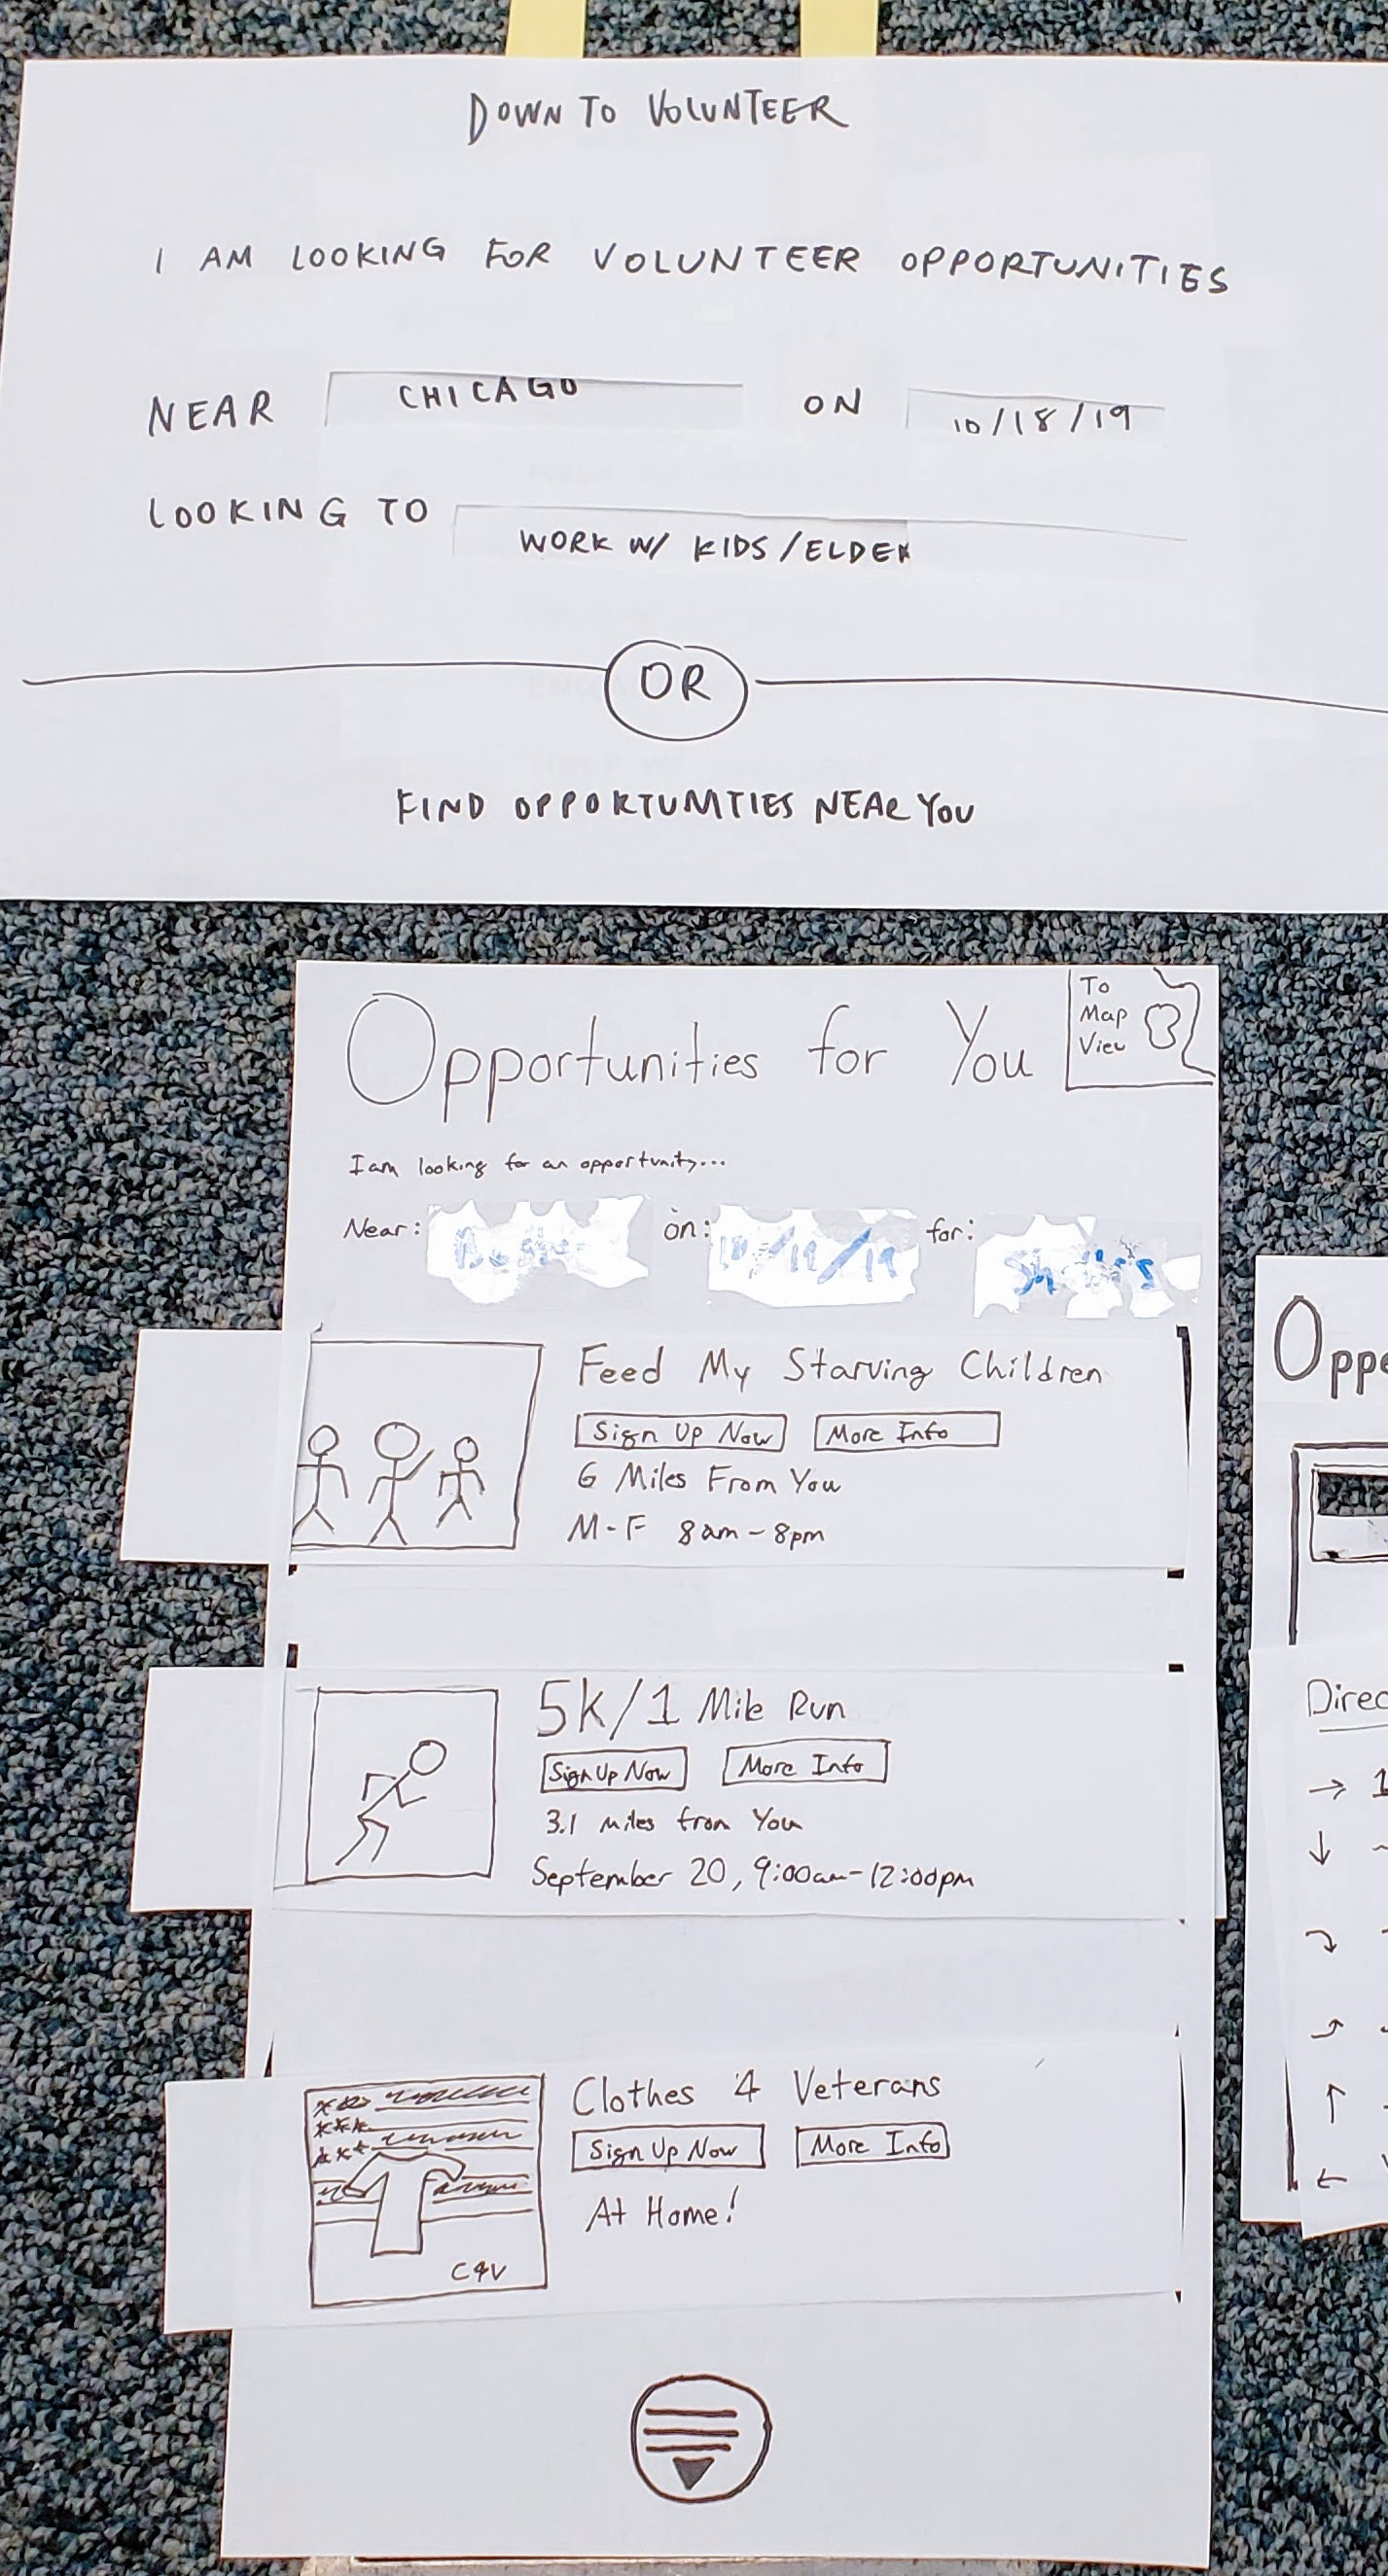 DOWN TO VOLUNTEER
I AM LOOKING FOR VOLUNTEER OPPORTUNITIES
NEAR CHICAGO ON 10/18/19
LOOKING TO WORK W/ KIDS/ELDER
OR
FIND OPPORTUNITIES NEAR YOU
Opportunities for You
To
Map
View
I am looking for an opportunity...
Near: on: for:
Feed My Starving Children
Sign Up Now More Info
6 Miles From You
M-F 8am-8pm
5k/1 Mile Run
Sign Up Now More Info
3.1 miles from You
September 20, 9:00am-12:00pm
Clothes 4 Veterans
Sign Up Now More Info
At Home!
C4V
Oppo
Direc
→ 1